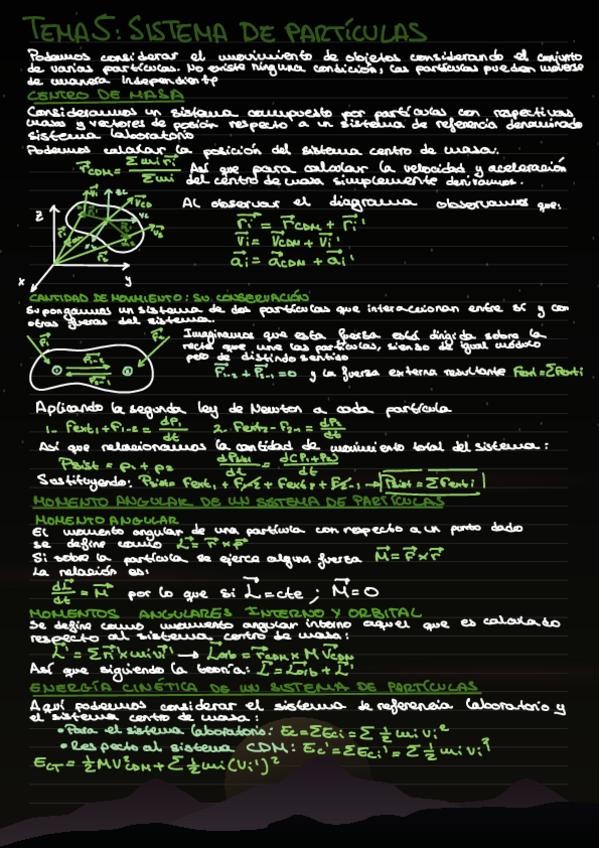 TEMA5: SISTEMA DE PARTÍCULAS
Podemos considerar el movimiento de objetos considerando el conjunto
de varias partículas. No existe ninguna condición, las partículas pueden moverse
de manera independiente
CENTRO DE MASA
Consideramos un sistema compuesto por partículas con respectivas
masas y vectores de posición respecto a un sistema de referencia denominado
sistema laboratorio
Podemos calcular la posición del sistema centro de masa.
r⃗CDM = Σmi r⃗i / Σmi Así que para calcular la velocidad y aceleración
del centro de masa simplemente derivamos.
Al observar el diagrama observamos que:
r⃗i = r⃗CDM + r⃗i'
v⃗i = v⃗CDM + v⃗i'
a⃗i = a⃗CDM + a⃗i'
z
x y
CANTIDAD DE MOVIMIENTO: SU CONSERVACIÓN
Supongamos un sistema de dos partículas que interaccionan entre sí y con
otras fuerzas del sistema.
Imaginamos que esta fuerza está dirigida sobre la
recta que une las partículas, siendo de igual módulo
pero de distindo sentido
F⃗1-2 + F⃗2-1 = 0 y la fuerza externa resultante Fext = ΣFexti
Aplicando la segunda ley de Newton a cada partícula
1- Fext1 + F1-2 = dP1/dt 2- Fext2 - F2-1 = dP2/dt
Así que relacionamos la cantidad de movimiento total del sistema:
Psist = p1 + p2 dPsist/dt = d(P1+P2)/dt
Sustituyendo: Psist = Fext1 + F1-2 + Fext2 + F2-1 → Psist = ΣFexti
MOMENTO ANGULAR DE UN SISTEMA DE PARTÍCULAS
MOMENTO ANGULAR
El momento angular de una partícula con respecto a un punto dado
se define como L⃗ = r⃗ x p⃗
Si sobre la partícula se ejerce alguna fuerza M⃗ = r⃗ x F⃗
La relación es:
dL⃗/dt = M⃗ por lo que si L⃗ = cte ; M⃗ = 0
MOMENTOS ANGULARES INTERNO Y ORBITAL
Se define como momento angular interno aquel que es calculado
respecto al sistema centro de masa:
L⃗' = Σr⃗i' x mi v⃗i' → L⃗orb = r⃗CDM x M v⃗CDM
Así que siguiendo la teoría: L⃗ = L⃗orb + L⃗'
ENERGÍA CINÉTICA DE UN SISTEMA DE PARTÍCULAS
Aquí podemos considerar el sistema de referencia laboratorio y
el sistema centro de masa:
• Para el sistema laboratorio: Ec = ΣEci = Σ ½ mi vi²
• Respecto al sistema CDM: Ec' = ΣEci' = Σ ½ mi vi'²
ECT = ½ M V²CDM + Σ ½ mi (vi')²